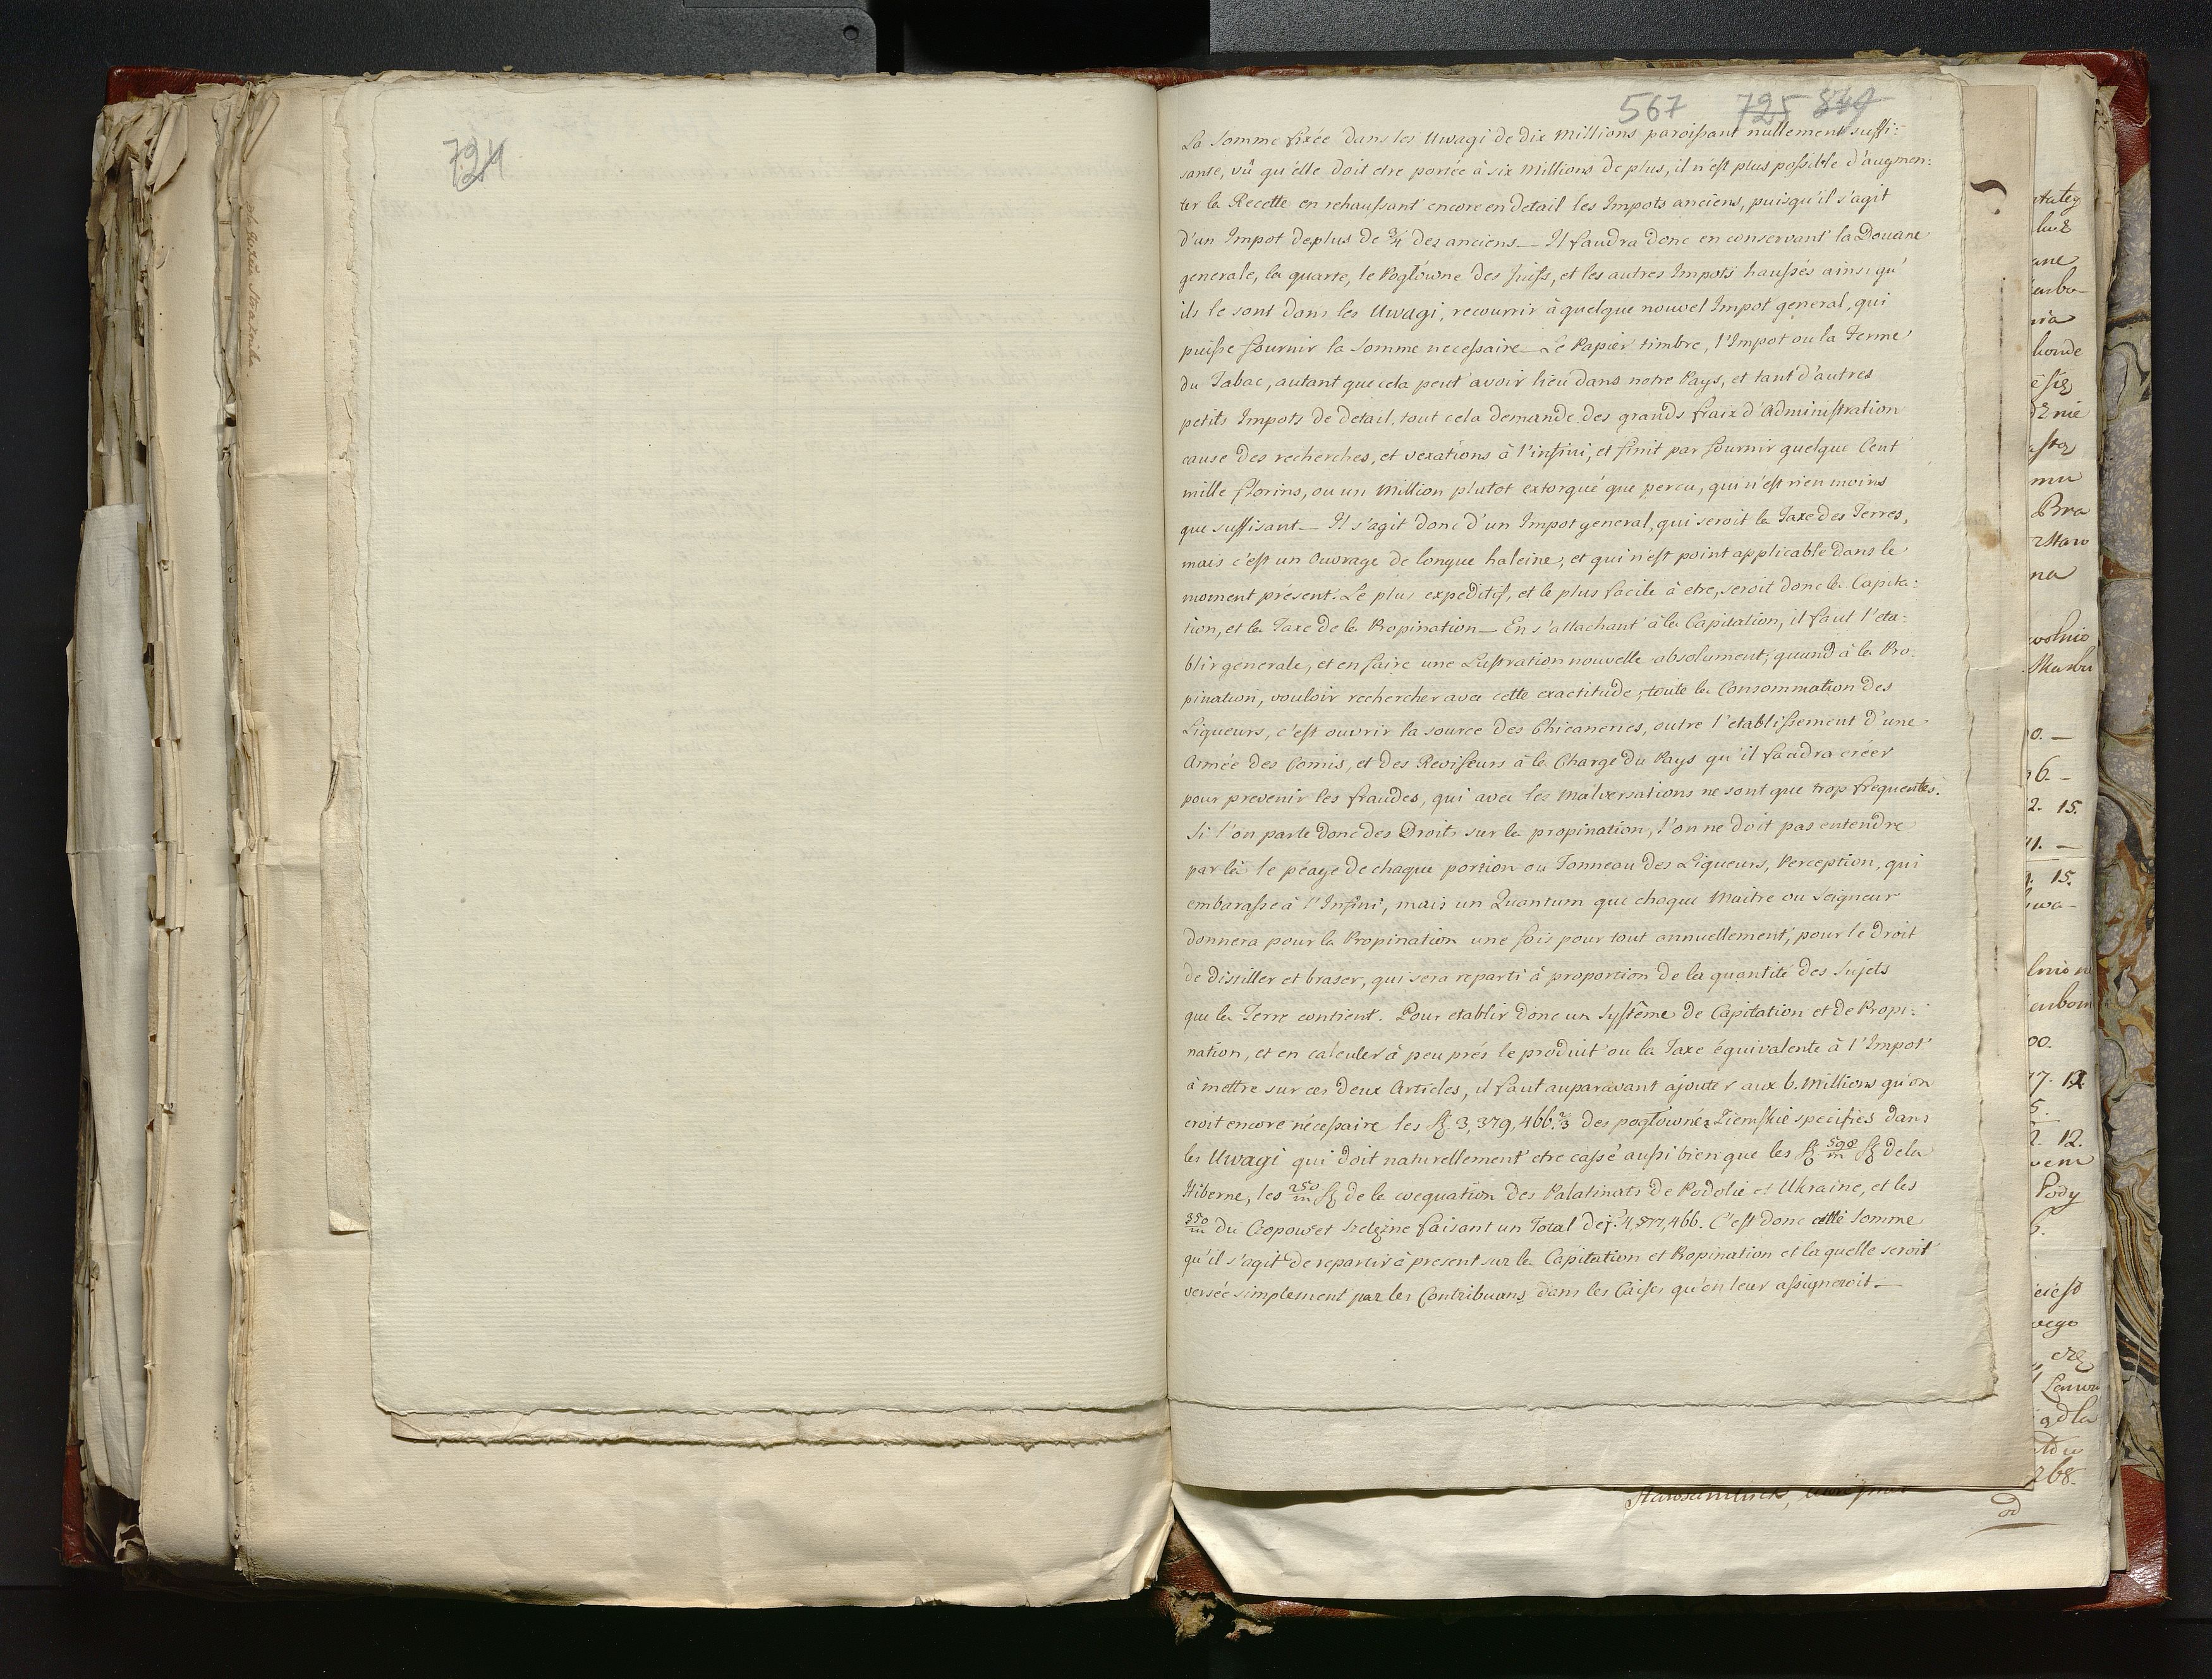 724
567 725 849
La Somme fixée dans les Uwagi de dix Millions paroissant nullement suffi:
sante, vû qu'elle doit etre portée à six Millions de plus, il n'est plus possible d'augmen:
ter la Recette en rehaussant encore en detail les Impots anciens, puisqu'il s'agit
d'un Impot deplus de 3/4 des anciens— Il faudra donc en conservant la Douane
generale, la quarte, le Pogłowne des Juifs, et les autres Impots haussés ainsi qu'
ils le sont dans les Uwagi, recourrir à quelque nouvel Impot general, qui
puisse fournir la Somme necessaire— Le Papier timbre, l'Impot ou la Ferme
du Tabac, autant que cela peut avoir lieu dans notre Pays, et tant d'autres
petits Impots de detail, tout cela demande des grands fraix d'Administration
cause des recherches, et vexations à l'infini, et finit par fournir quelque Cent
mille florins, ou un Million plutot extorqué que percu, qui n'est rien moins
que suffisant— Il s'agit donc d'un Impot general, qui seroit la Taxe des Terres,
mais c'est un Ouvrage de longue haleine, et qui n'est point applicable dans le
moment présent. Le plus expeditif, et le plus facile à etre, seroit donc la Capita:
tion, et la Taxe de la Propination— En s'attachant à la Capitation, il faut l'eta:
blir generale, et en faire une Lustration nouvelle absolument; quand à la Pro:
pination, vouloir rechercher avec cette exactitude, toute la Consommation des
Liqueurs, c'est ouvrir la source des Chicaneries, outre l'etablissement d'une
Armée des Comis, et des Reviseurs à la Charge du Pays qu'il faudra créer
pour prevenir les fraudes, qui avec les malversations ne sont que trop frequentes.
Si l'on parle donc des Droits sur la propination, l'on ne doit pas entendre
par là le péage de chaque portion ou Tonneau des Liqueurs, Perception, qui
embarasse à l'Infini, mais un Quantum que chaque Maitre ou Seigneur
donnera pour la Propination une fois pour tout annuellement, pour le droit
de distiller et braser, qui sera reparti à proportion de la quantité des Sujets
que la Terre contient. Pour etablir donc un Systême de Capitation et de Propi:
nation, et en calculer à peu prés le produit ou la Taxe équivalente à l'Impot
à mettre sur ces deux Articles, il faut auparavant ajouter aux 6. Millions qu'on
croit encore nécessaire les fl. 3,379,466. 2/3 des pogłowne Ziemskie specifiés dans
les Uwagi qui doit naturellement etre cassé aussi bien que les 598/m fl de la
Hiberne, les 250/m fl de la coequation des Palatinats de Podolie et Ukraine, et les
350/m du Czopowe et Szelężne faisant un Total de f. 4,577,466. C'est donc cette Somme
qu'il s'agit de repartir à present sur la Capitation et Propination et la quelle seroit
versée simplement par les Contribuans dans les Caisses qu'on leur assigneroit.—
od